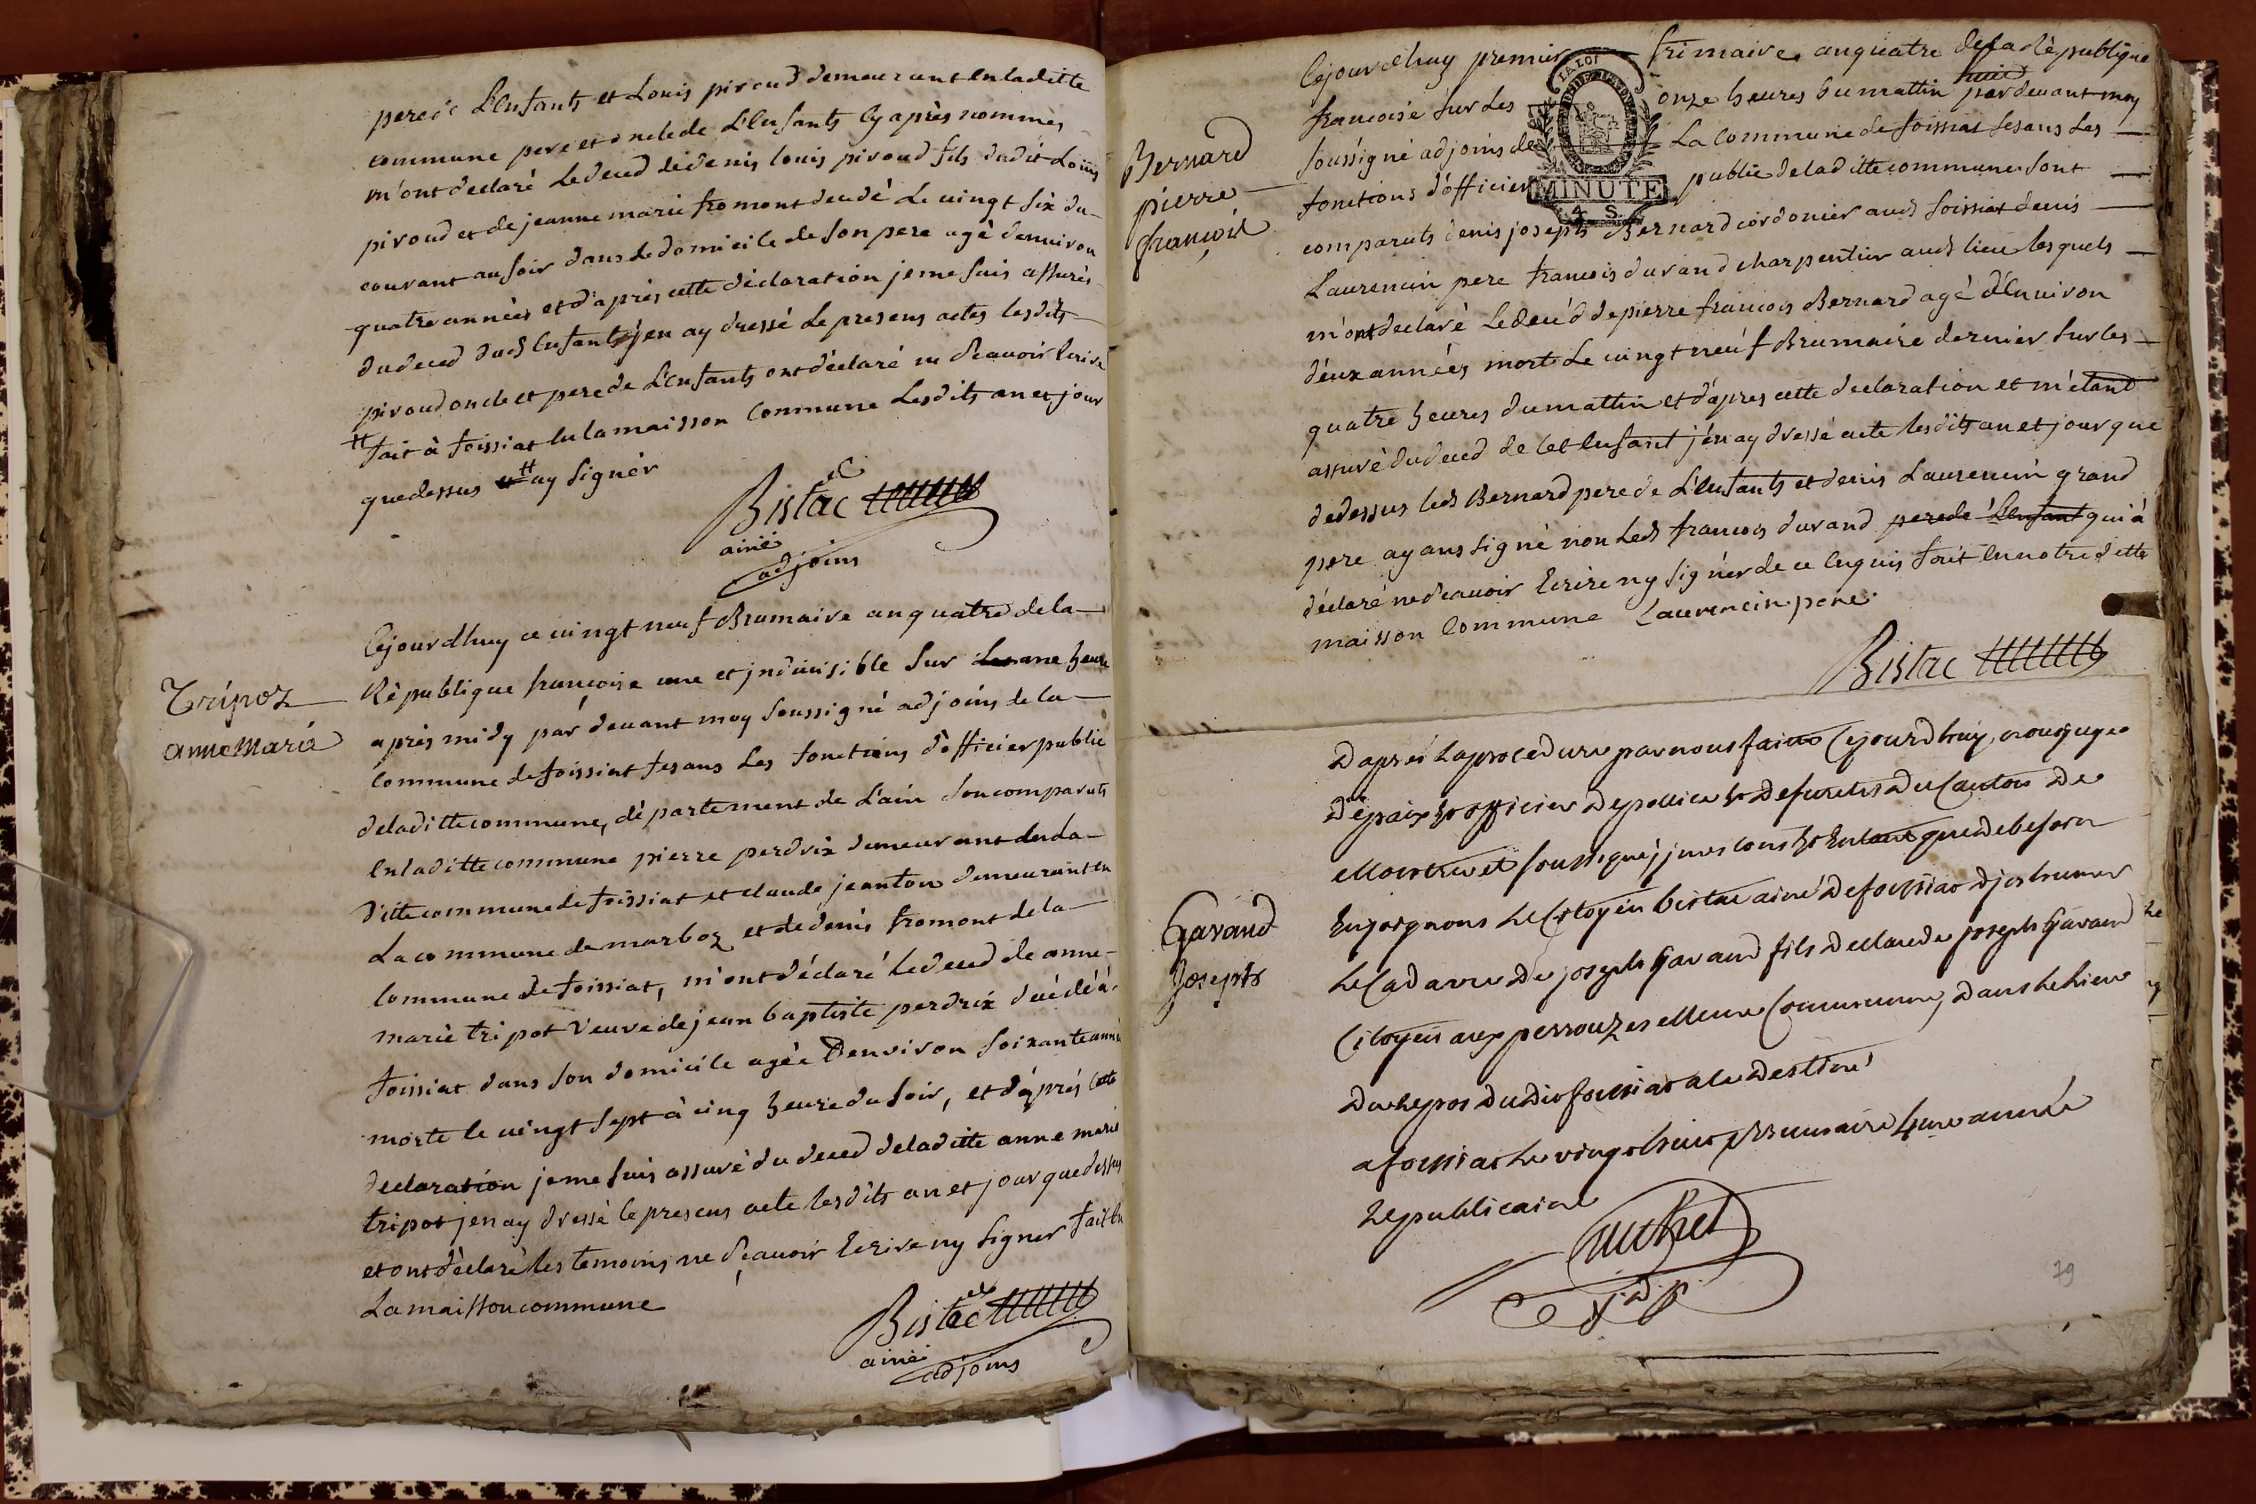 pere de L'Enfants et Louis piroud demeurant en laditte
commune pere et oncle de L'Enfants cy après nommés
m'ont declaré le deced de denis louis piroud fils dudit Louis
piroud et de jeanne marie fromont decedé Le vingt six du
courant au soir dans le domicile de son pere agé denviron
quatre années et d'après cette déclaration je me suis assurés
du deced dud Enfants j'en ay dressé Le presens actes lesdits
piroud oncle et pere de L'Enfants ont déclaré ne scavoir Ecrire
fait à foissiat En la maisson Commune Lesdits an et jour
que dessus et ay signér
Bistac
ainé
adjoins
Tripoz
anne Marie
Cejourdhuy ce vingt neuf Brumaire an quatre de la
République françoise une et jndivisible sur une heure
après midy par devant moy soussigné adjoins de la
Commune de foissiat fesans Les fonctions d'officier public
de laditte commune, département de L'ain son comparuts
En laditte commune pierre perdrix demeurant de la
ditte commune de foissiat et claude jeanton demeurant en
La commune de marboz et de denis fromont de la
Commune de foissiat, m'ont déclaré Le deced de anne
marie tripot veuve de jean baptiste perdrix decédé à
foissiat dans son domicile agée Denviron soixante anné
morte le vingt sept à cinq heure du soir, et d'aprés Cette
declaration je me suis assuré du deced de laditte anne marie
tripot jen ay dressé le presens acte lesdits an et jour que dessus
et ont déclaré les temoins ne scavoir Ecrire ny signer fait En
La maisson commune
Bistac
ainé
adjoins
Bernard
pierre
françois
Cejourdhuy premier frimaire an quatre de la République
francoise sur Les onze heures du mattin pardevant moy
soussigné adjoins de La Commune de foissiat fesans Les
fonctions d'officier public de laditte commune sont
LA LOI
MINUTE
4 S
comparuts denis joseph Bernard cordonier aud foissiat denis
Laurencin pere francois durand charpentier aud lieu lesquels
m'ont declaré Le decéd de pierre francois Bernard agé d'Environ
déux années mort Le vingt neuf Brumaire dernier sur les
quatre heures du mattin et d'apres cette declaration et m'étand
assuré du deced de cet Enfant j'en ay dressé acte lesdits an et jour que
dedessus led Bernard pere de L'Enfants et denis Laurencin grand
pere ayans signé non Led francois durand pere de L'Enfant qui à
déclaré ne scavoir Ecrire ny signér de ce Enquis fait En notre ditte
maisson Commune Laurencin pere
Bistac
Gavand
Joseph
D'après la procedure par nous faitte Cejourdhuy, nous juge
De paix et officier De police et De sureté Du Canton De
soussigné,
Enjoignons Le Citoyen bistac ainé De foissiat D'inhumer
Le Cadavre De joseph Gavand fils De claude joseph Gavand
Citoyen aux perrouzes Commune, Dans Le lieu
De repos Dudit foissiat a ce Destiné
a foissiat Le vingt huit Brumaire 4me année
Republicaine
j. d. p.
79